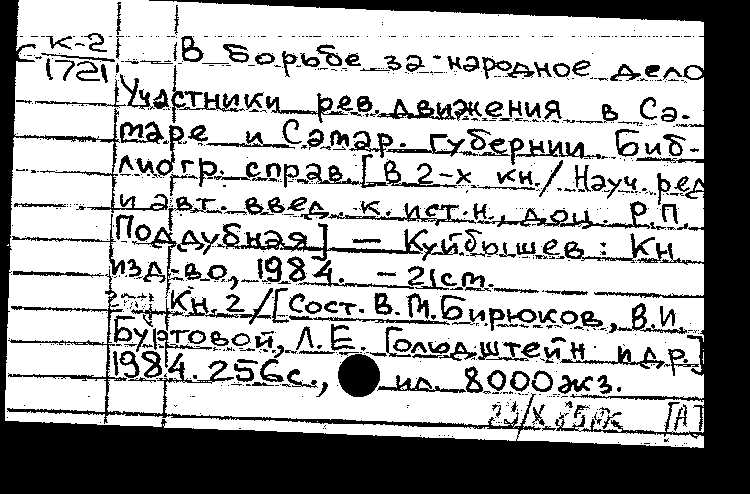 К-2
С 1721
В борьбе за народное дело
Участники рев. движения в Са-
маре и Самар. губернии. Биб-
лиогр. справ. [В 2-х кн./ Науч. ред
и авт. введ. к. ист. н., доц. Р.П.
Поддубная] — Куйбышев: Кн
изд-во, 1984. - 21cm.
Кн. 2/[Сост. В.М.Бирюков, В.И.
Буртовой, Л.Е. Гольдштейн и др.]
1984. 256с., ил. 8000экз.
23/X 85 [А]